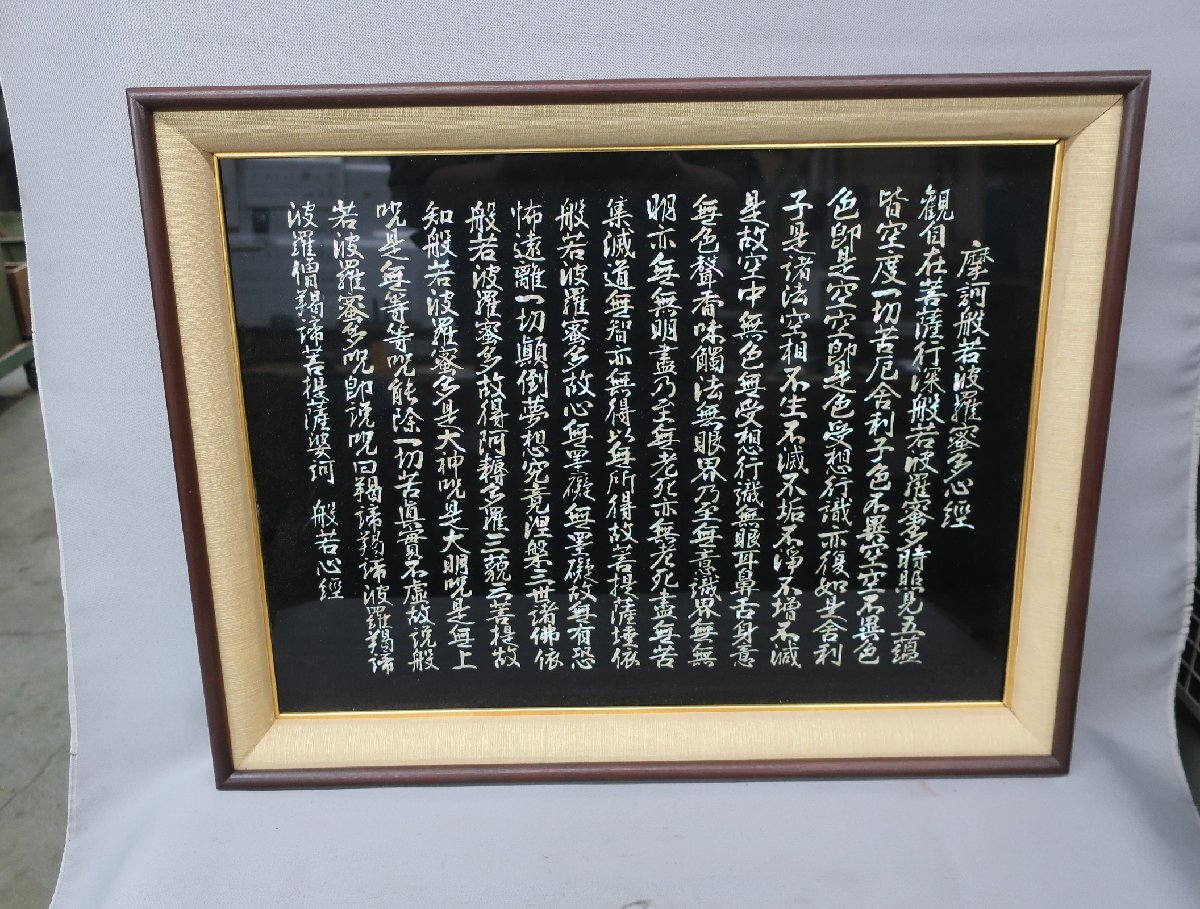 摩訶般若波羅蜜多心經
觀自在菩薩行深般若波羅蜜多時照見五蘊
皆空度一切苦厄舍利子色不異空空不異色
色即是空空即是色受想行識亦復如是舍利
子是諸法空相不生不滅不垢不淨不增不減
是故空中無色無受想行識無眼耳鼻舌身意
無色聲香味觸法無眼界乃至無意識界無無
明亦無無明盡乃至無老死亦無老死盡無苦
集滅道無智亦無得以無所得故菩提薩埵依
般若波羅蜜多故心無罣礙無罣礙故無有恐
怖遠離一切顛倒夢想究竟涅槃三世諸佛依
般若波羅蜜多故得阿耨多羅三藐三菩提故
知般若波羅蜜多是大神呪是大明呪是無上
呪是無等等呪能除一切苦眞實不虛故說般
若波羅蜜多呪即說呪曰羯諦羯諦波羅羯諦
波羅僧羯諦菩提薩婆訶 般若心經